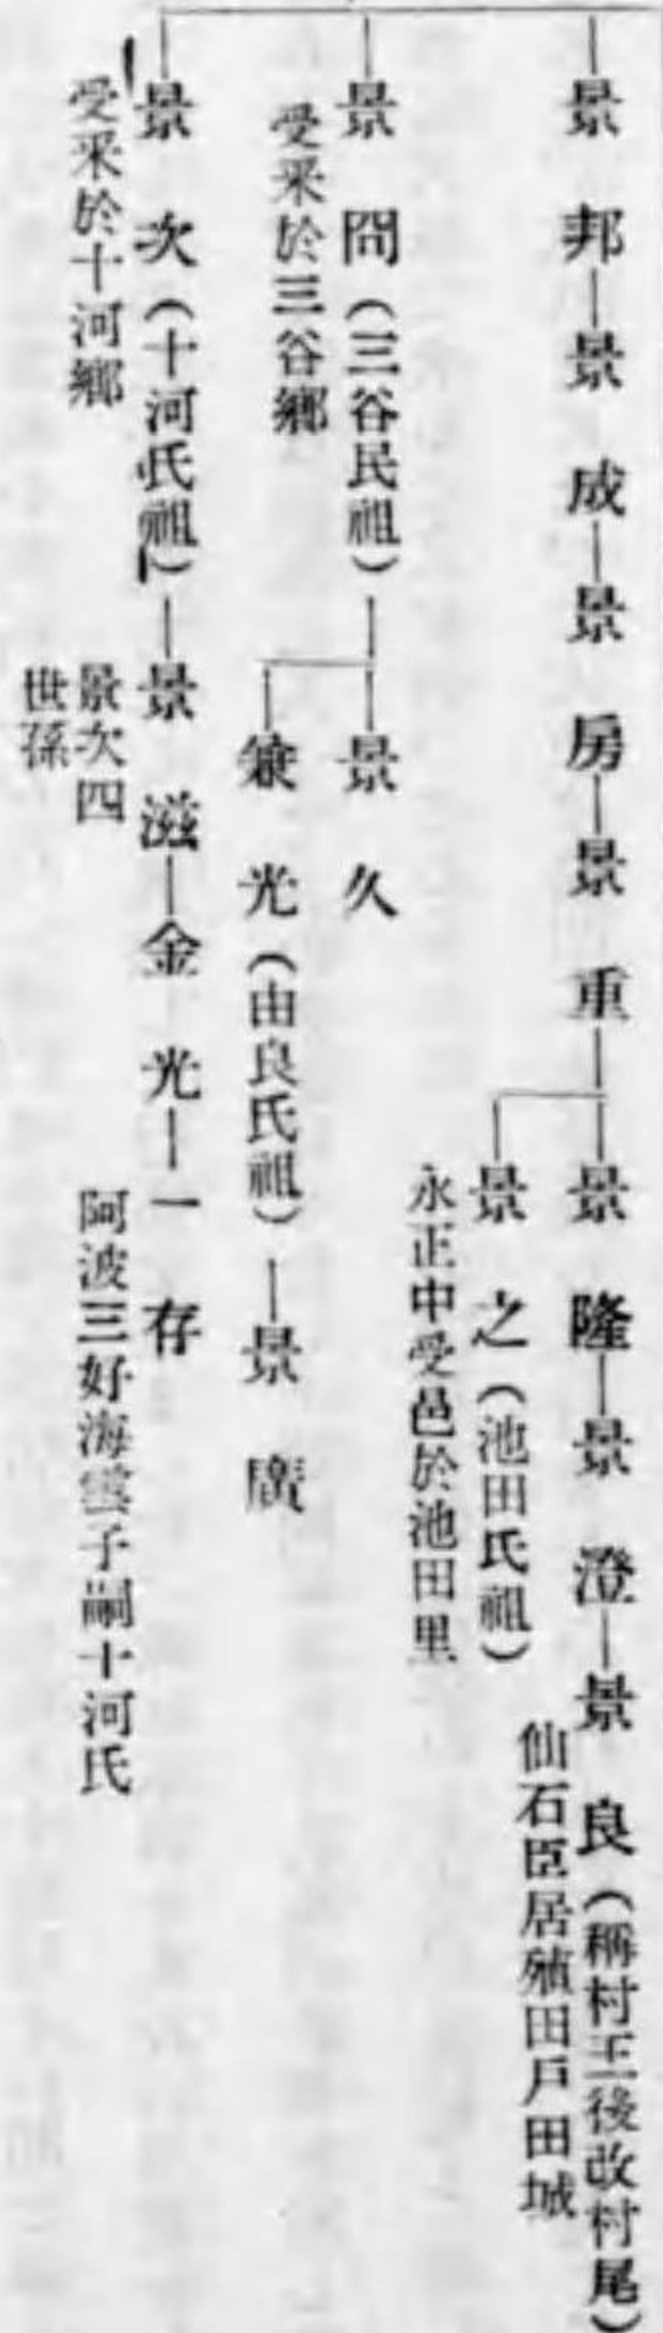 景邦―景成―景房―景重―景隆―景澄―景良(稱村王後改村尾)
仙石臣居殖田戸田城
景之(池田氏祖)
永正中受邑於池田里
景冏(三谷民祖)―景久
受采於三谷鄉
兼光(由良氏祖)―景廣
景次(十河氏祖)―景滋―金光―一存
受采於十河鄉
景次四
世孫
阿波三好海雲子嗣十河氏